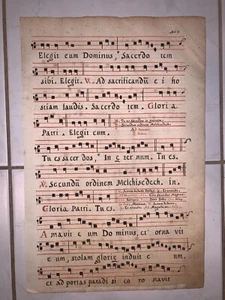 Elegit eum Dominus, Sacerdo tem
sibi. Elegit. V. Ad sacrificandū ei ho
stiam laudis. Sacerdo tem. Gloria
Patri. Elegit eum.
Tu es sacer dos, In e ter num. Tu es.
V. Secundū ordinem Melchisedech. in.
Gloria Patri. Tu es.
Amavit e um Do minus, et orna vit
e um, stolam glorię induit e um.
et ad portas paradi si co ro navit